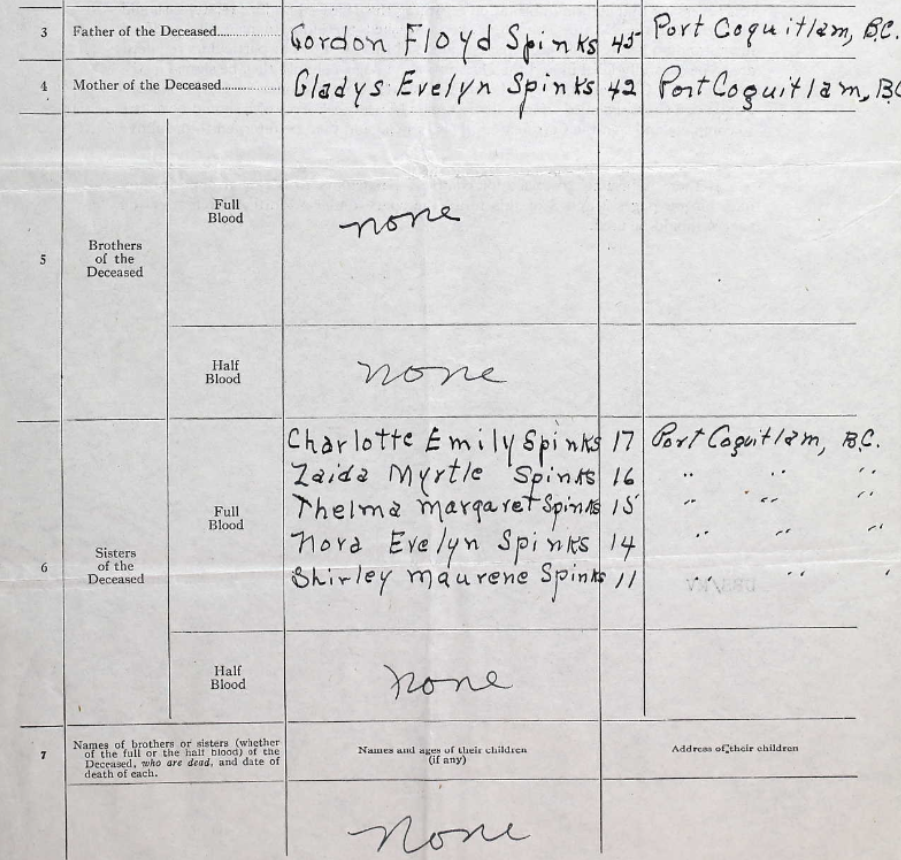 3 Father of the Deceased.............. Gordon Floyd Spinks 45 Port Coquitlam, B.C.
4 Mother of the Deceased............. Gladys Evelyn Spinks 42 Port Coquitlam, BC
Full
Blood
none
5 Brothers
of the
Deceased
Half
Blood
none
Charlotte Emily Spinks 17 Port Coquitlam, B.C.
Zaida Myrtle Spinks 16 " " "
Thelma Margaret Spinks 15 " " "
Nora Evelyn Spinks 14 " " "
Shirley Maurene Spinks 11 " " "
Full
Blood
6 Sisters
of the
Deceased
Half
Blood
none
7 Names of brothers or sisters (whether
of the full or the half blood) of the
Deceased, who are dead, and date of
death of each.
Names and ages of their children
(if any)
Address of their children
None